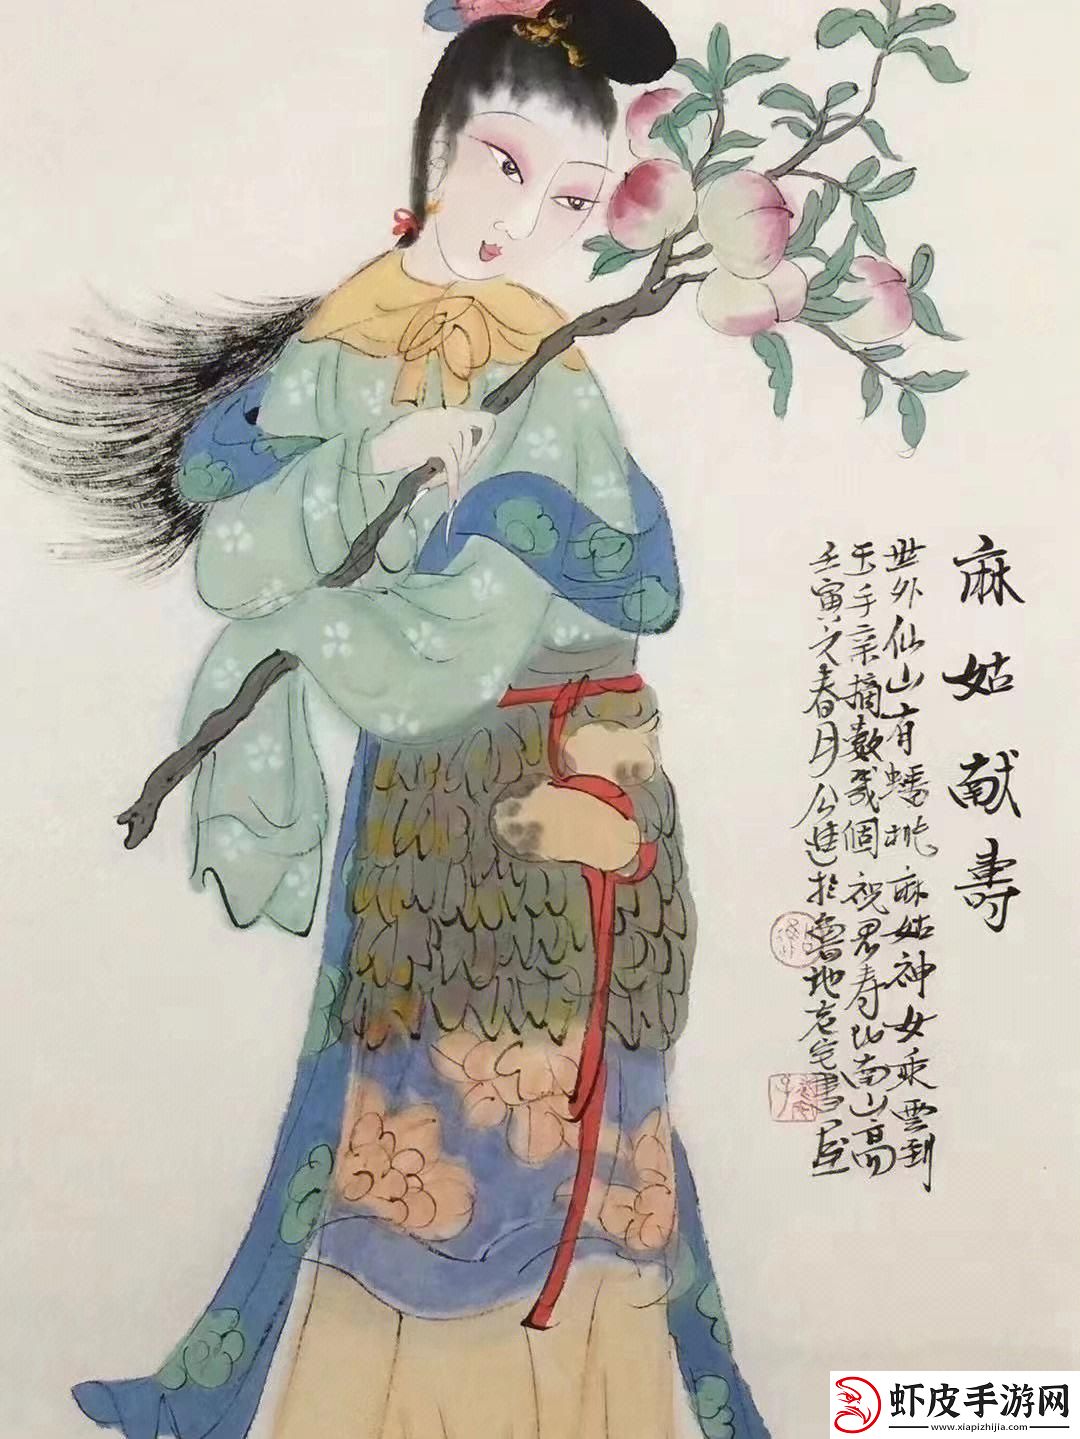 麻姑献壽
世外仙山有蟠桃麻姑神女乘雲到
玉手亲摘數幾個祝君寿比南山高
壬寅之春月公進於魯地老宅書屋
虾皮手游网
www.xiapizhijia.com